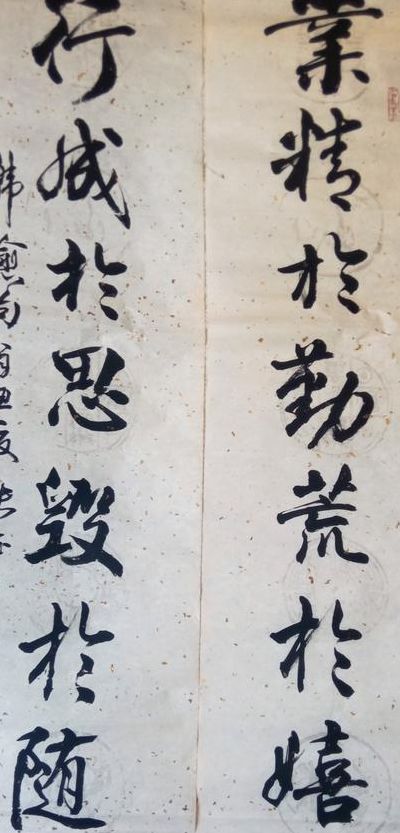 業精於勤荒於嬉
行成於思毀於随
韩愈句